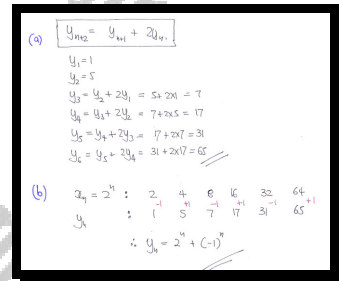 (a) yₙ₊₂ = yₙ₊₁ + 2yₙ.
y₁ = 1
y₂ = 5
y₃ = y₂ + 2y₁ = 5 + 2×1 = 7
y₄ = y₃ + 2y₂ = 7 + 2×5 = 17
y₅ = y₄ + 2y₃ = 17 + 2×7 = 31
y₆ = y₅ + 2y₄ = 31 + 2×17 = 65
(b) xₙ = 2ⁿ : 2 4 8 16 32 64
-1 +1 -1 +1 -1 +1
yₙ : 1 5 7 17 31 65
∴ yₙ = 2ⁿ + (-1)ⁿ